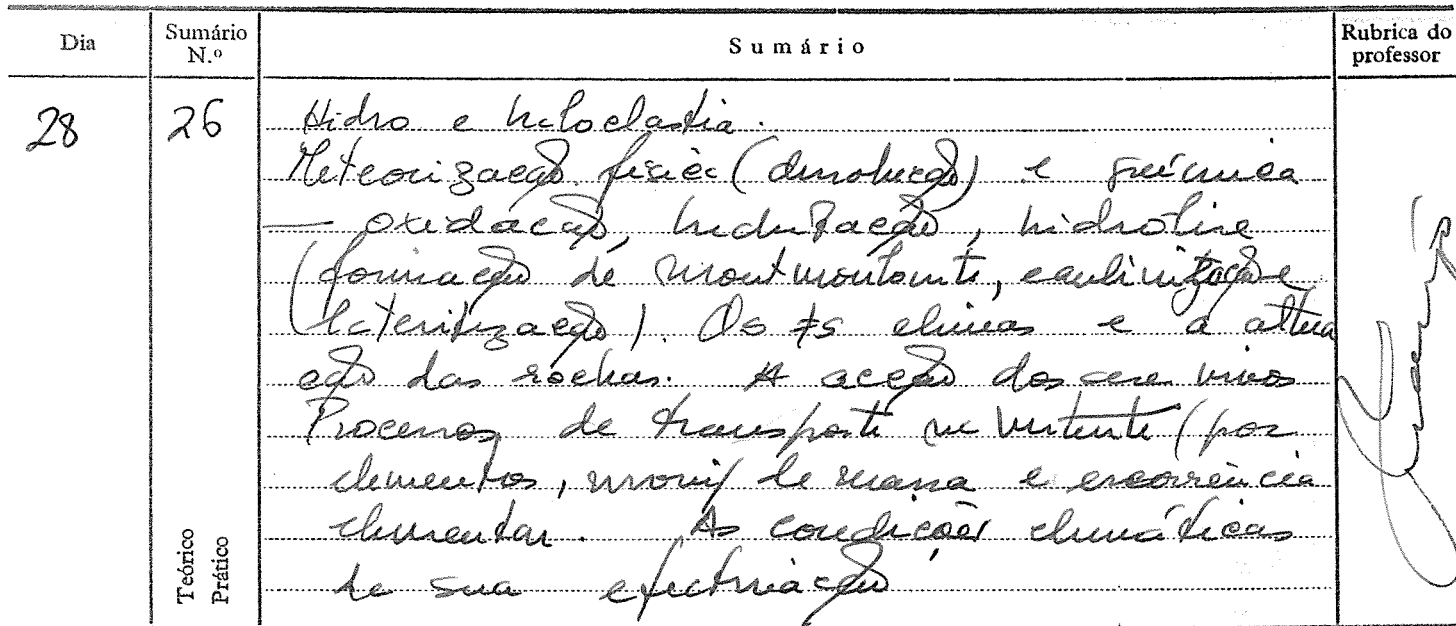 Dia
Sumário N.º
Sumário
Rubrica do professor
28
26
Hidro e haloclastia.
Meteorização física (dissolução) e química
— oxidação, hidratação, hidrólise
(formação de montmorilonite, caulinização e
laterização). Os ≠s climas e a altera
ção das rochas. A acção dos seres vivos
Processos de transporte na vertente (por
elementos, movi/ de massa e escorrência
elementar. As condições climáticas
de sua efectuação
Teórico
Prático